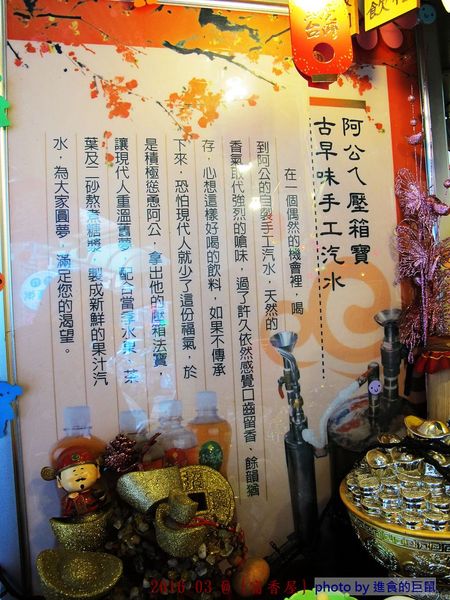 阿公ㄟ壓箱寶
古早味手工汽水
在一個偶然的機會裡，喝
到阿公的自製手工汽水，天然的
香氣取代強烈的嗆味，過了許久依然感覺口齒留香、餘韻猶
存，心想這樣好喝的飲料，如果不傳承
下來，恐怕現代人就少了這份福氣，於
是積極慫恿阿公，拿出他的壓箱法寶
讓現代人重溫舊夢，配合當季水果、茶
葉及二砂熬煮糖漿，製成新鮮的果汁汽
水，為大家圓夢，滿足您的渴望。
飲料
2016.03@
photo by 進食的巨鼠